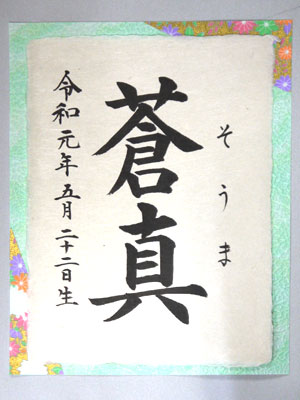 そうま
蒼真
令和元年五月二十二日生